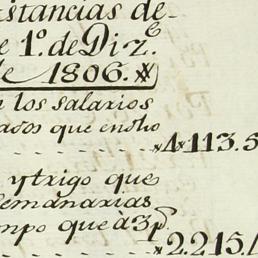 stancias de-
e 1º. de Diz.e
de 1806.
n los salarios
ados que en dho
4113.5
y trigo que
emanarias
mpo que à 3p
2.215.